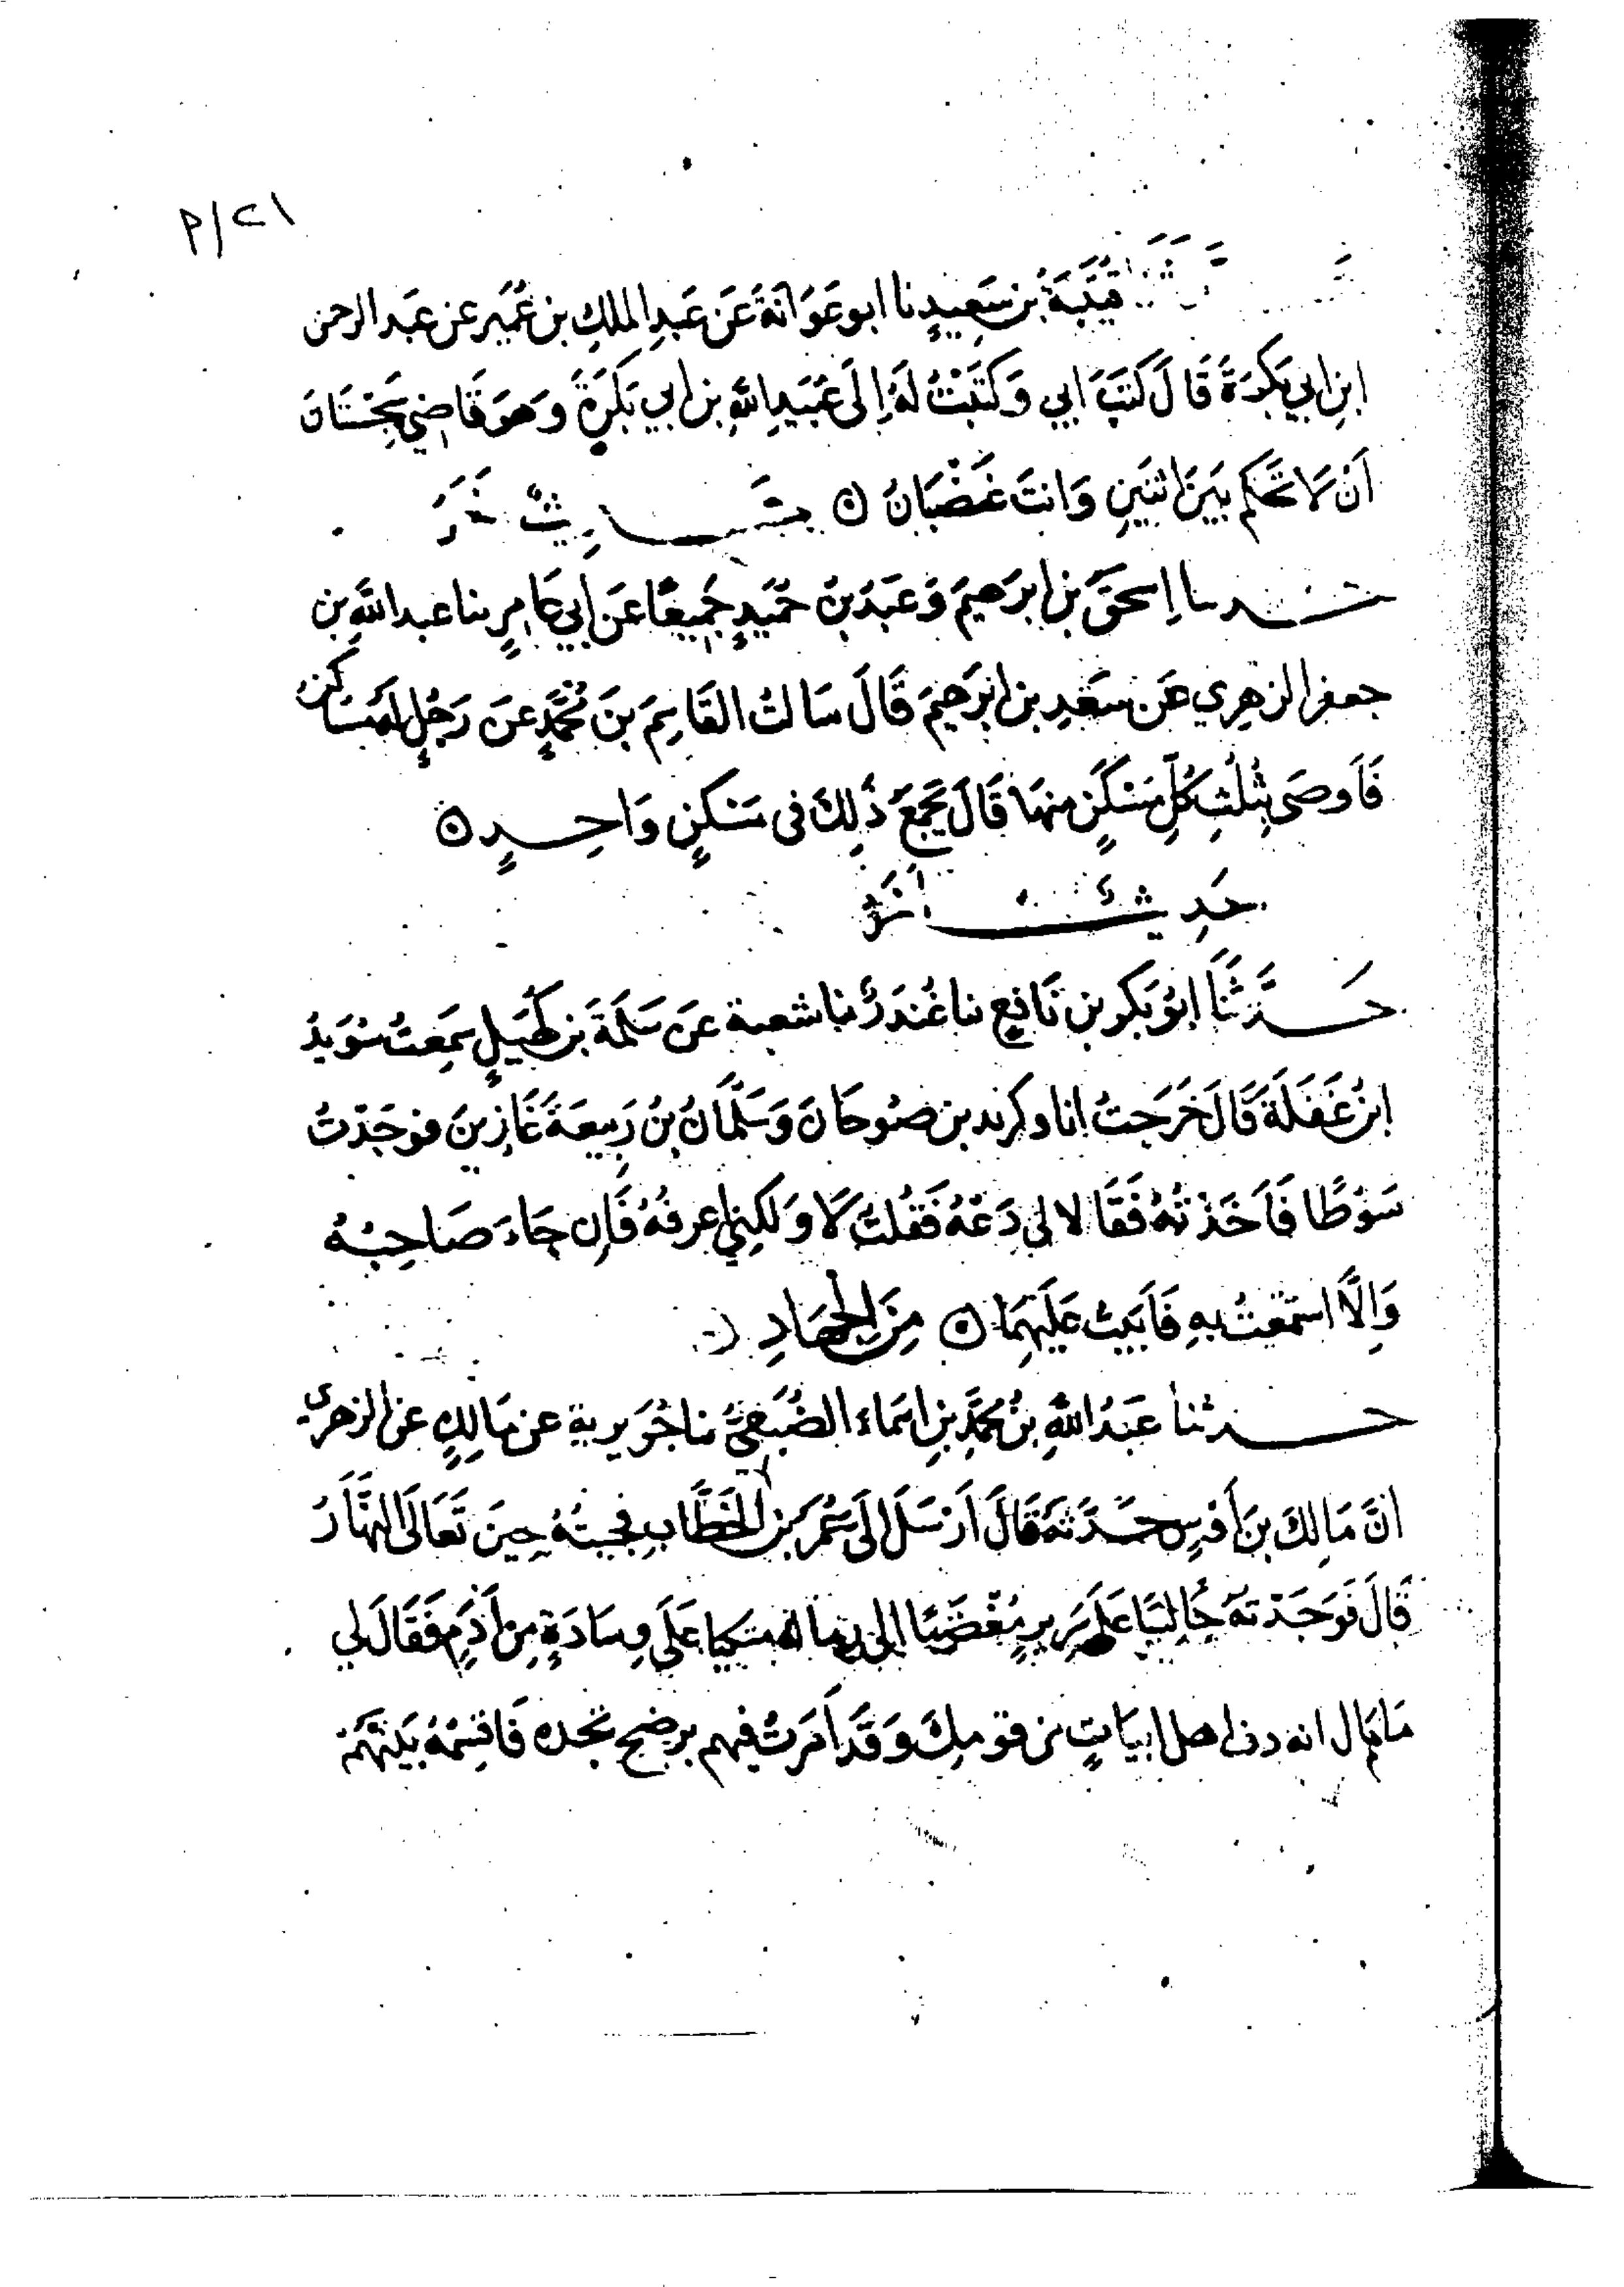 ٢١/م
قُتَيْبَةُ بْنُ سَعِيدٍ نا ابو عَوَانَةَ عَنْ عَبْدِ الملكِ بن عُمَيْرٍ عن عبد الرحمن
ابنِ ابي بَكْرَةَ قَالَ كَتَبَ ابي وَكَتَبْتُ لَهُ اِلَى عُبَيْدِ اللهِ بن ابي بَكْرَةَ وَهو قَاضِي بِسِجِسْتَانَ
اَنْ لَا تَحْكُمْ بَيْنَ اثْنَيْنِ وَانتَ غَضْبَانُ ۞ حَدِيثٌ آخَرُ
حدثنا اِسحَقُ بْنُ ابْرَهِيمَ وَعَبْدُ بْنُ حُمَيْدٍ جَمِيعًا عَنْ ابي عَامِرٍ بنا عبد اللهِ بن
جعفر الزهري عَن سَعْدِ بن ابْرَهِيمَ قَالَ سَالتُ القَاسِمَ بنَ مُحَمَّدٍ عَنْ رَجُلٍ له مساكن
فَاَوصَى بِثُلُثِ كُلِّ مَسْكَنٍ منهَا قَالَ يُجْمَعُ ذَلِكَ فى مَسْكَنٍ وَاحِدٍ ۞
حَدِيثٌ آخَرُ
حَدَّثَنَا ابُو بَكر بن نَافِعٍ نا غُنْدَرٌ نا شعبة عَن سَلَمَةَ بن كُهَيْلٍ سَمِعتُ سُوَيْدَ
ابْنَ غَفَلَةَ قَالَ خَرَجتُ انا وزيد بن صُوحَانَ وَسَلْمَانُ بْنُ رَبِيعَةَ غَازِينَ فوجَدْتُ
سَوْطًا فَاَخَذْتُهُ فَقَالا لى دَعْهُ فَقُلتُ لَا وَلكِنِّي اعرفهُ فَاِن جَاءَ صَاحِبُهُ
وَاِلَّا استَمْتَعْتُ بهِ فَاَبَيْتُ عَلَيْهِمَا ۞ مِنَ الجهَادِ
حدثنا عَبْدُ اللهِ بْنُ مُحَمَّدِ بنِ اسَمَاءَ الضُّبَعِيُّ نا جُوَيرية عن مَالِكٍ عن الزهري
اَنَّ مَالكَ بنَ اَوْسٍ حَدَّثَهُ قَالَ اَرْسَلَ اِلَىَّ عُمَرُ بْنُ الخَطَّابِ فجيتُهُ حِينَ تَعَالَى النَّهَارُ
قَالَ فَوَجَدْتُهُ جَالِسًا عَلَى سَرِيرٍ مُفْضِيًا الى رماله متكيا عَلَى وِسَادَةٍ مِن اَدَمٍ فَقَالَ لي
مَا مَالِ انه دف اهل ابيَاتٍ مِن قومِكَ وَقَد اَمَرتُ فيهم برضخ فخذه فَاقسِمْهُ بَيْنَهُمْ